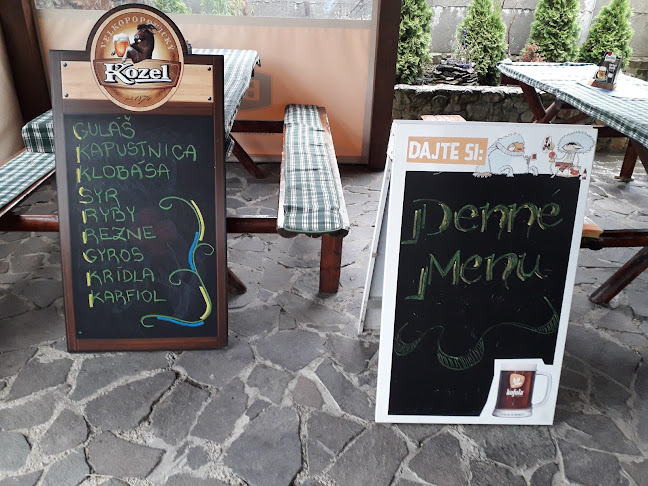 VELKOPOPOVICKÝ
Kozel
GULÁŠ
KAPUSTNICA
KLOBÁSA
SYR
RYBY
REZNE
GYROS
KRÍDLA
KARFIOL
DAJTE SI:
Denné
Menu
kofola